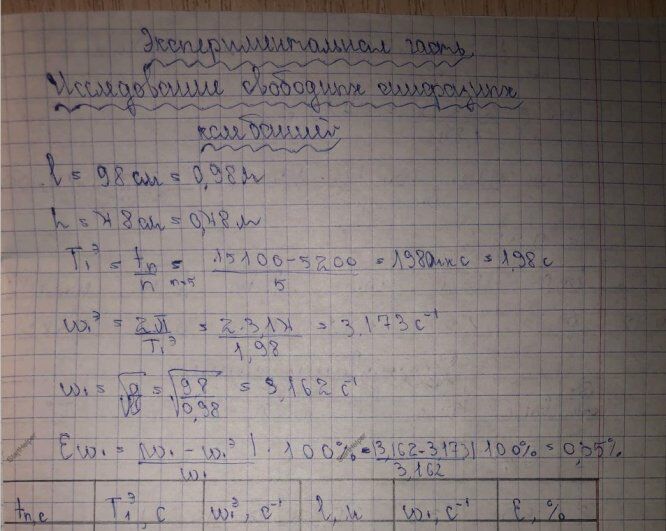 Экспериментальная часть
Исследование свободных синфазных
колебаний
l = 98 см = 0,98 м
h = 48 см = 0,48 м
T₁ᵞ = tₙ/n = (15100-5200)/5 = 1980 мс = 1,98 с
n=5
ω₁ᵞ = 2π/T₁ᵞ = 2·3,14/1,98 = 3,173 с⁻¹
ω₁ = √(g/l) = √(9,8/0,98) = 3,162 с⁻¹
εω₁ = |ω₁ - ω₁ᵞ|/ω₁ · 100% = |3,162-3,173|/3,162 100% = 0,35%
tₙ, с T₁ᵞ, с ω₁ᵞ, с⁻¹ l, м ω₁, с⁻¹ ε, %